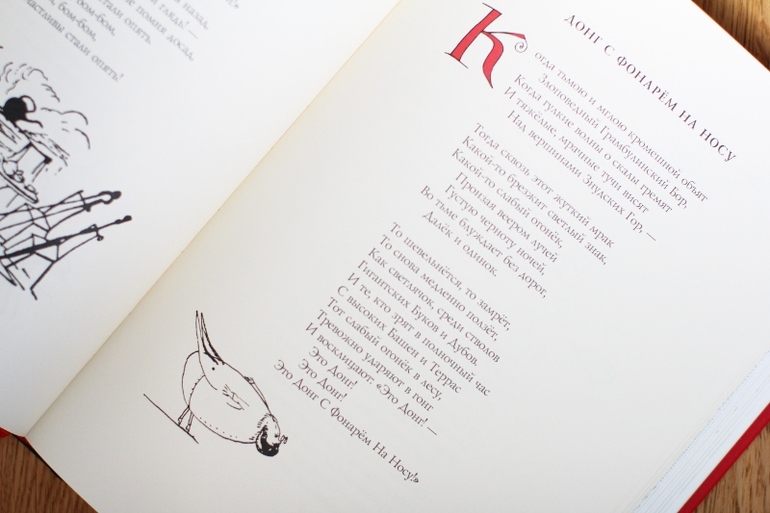 назад,
стали опять.
бом-бом,
бом, бом-бом,
не помня досад,
счастливы стали опять!
ДОНГ С ФОНАРЁМ НА НОСУ
Когда тьмою и мглою кромешной объят
Злоповедный Грамбулинский Бор,
Когда гулкие волны о скалы гремят
И тяжёлые, мрачные тучи висят
Над вершинами Знудских Гор, —
Тогда сквозь этот жуткий мрак
Какой-то брезжит светлый знак,
Какой-то слабый огонёк,
Пронзая веером лучей
Густую черноту ночей,
Во тьме блуждает без дорог,
Далёк и одинок.
То шевельнётся, то замрёт,
То снова медленно ползёт,
Как светлячок, среди стволов
Гигантских Буков и Дубов.
И те, кто зрят в полночный час
С высоких Башен и Террас
Тот слабый огонёк в лесу,
Тревожно ударяют в гонг
И восклицают: «Это Донг! —
Это Донг!
Это Донг!
Это Донг С Фонарём На Носу!»